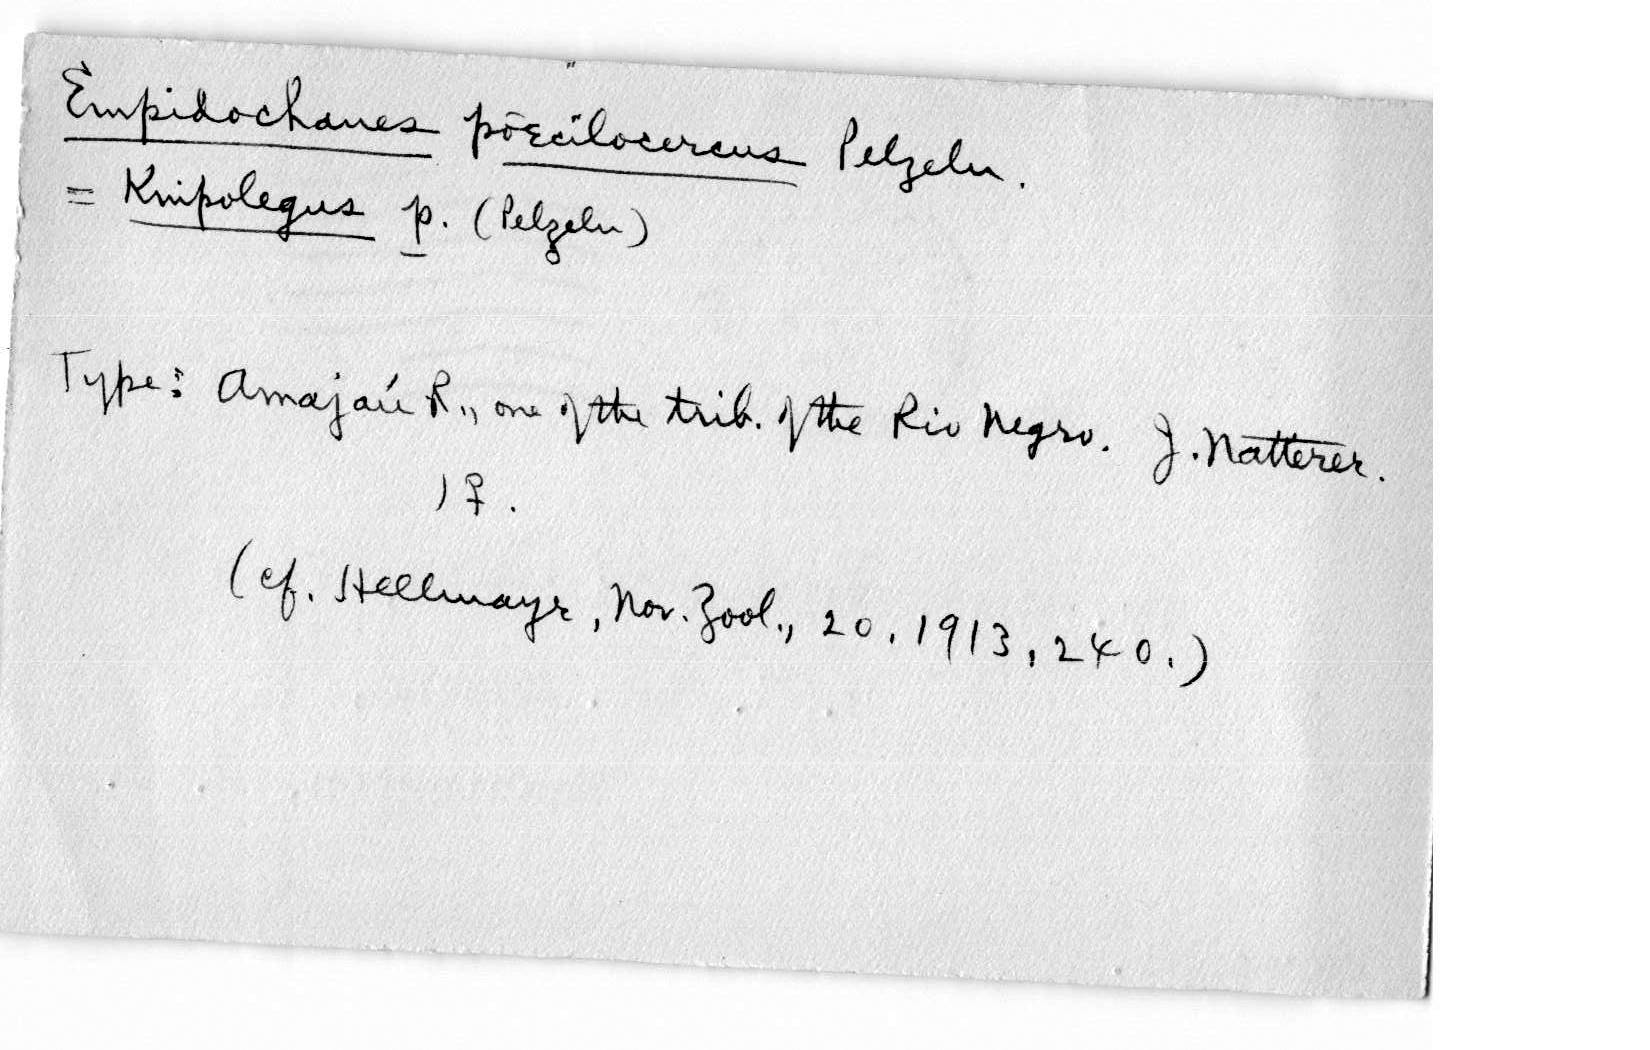 Empidochanes poecilocercus Pelzeln.
= Knipolegus p. (Pelzeln)
Type: Amajaú R., one of the trib. of the Rio Negro. J. Natterer.
1 ♀.
(cf. Hellmayr, Nov. Zool., 20, 1913, 240.)